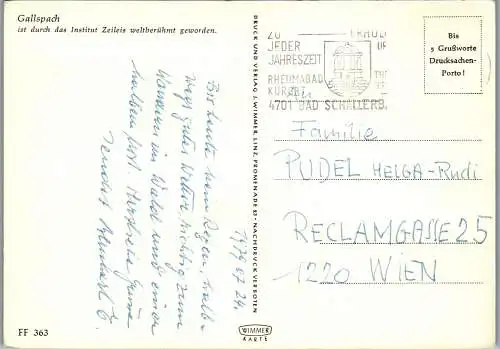 Gallspach
ist durch das Institut Zeileis weltberühmt geworden.
Bis heute kein Regen, halb-
wegs gutes Wetter, richtig zum
Wandern im Wald und einer
halben Port.
Sendet
1979 07 24.
DRUCK UND VERLAG J. WIMMER, LINZ, PROMENADE 23 • NACHDRUCK VERBOTEN
ZU
JEDER
JAHRESZEIT
RHEUMABAD
KURORT
4701 BAD SCHALLERB.
Bis
5 Grußworte
Drucksachen-
Porto!
An
Familie
PUDEL HELGA-Rudi
RECLAMGASSE 25
1220 WIEN
FF 363
WIMMER
KARTE